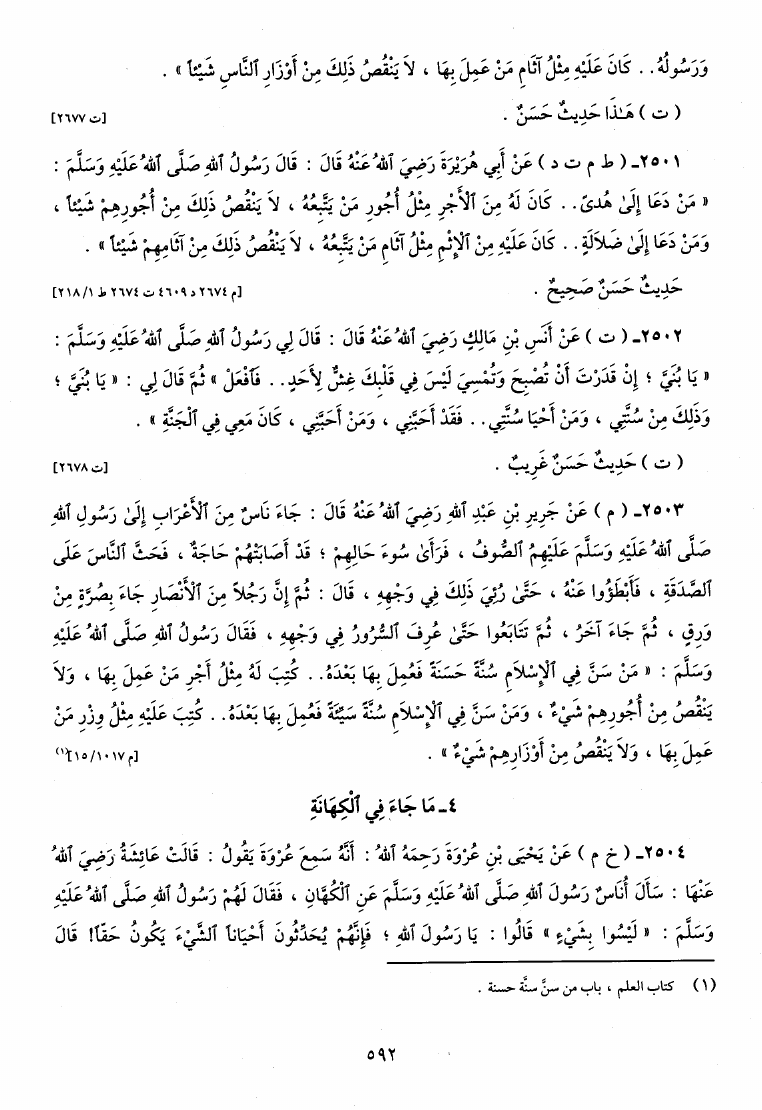 وَرَسُولُهُ . . كَانَ عَلَيْهِ مِثْلُ آثَامِ مَنْ عَمِلَ بِهَا ، لاَ يَنْقُصُ ذَلِكَ مِنْ أَوْزَارِ ٱلنَّاسِ شَيْئاً » .
( ت ) هَـٰذَا حَدِيثٌ حَسَنٌ . [ت ٢٦٧٧]
٢٥٠١ـ ( ط م ت د ) عَنْ أَبِي هُرَيْرَةَ رَضِيَ ٱللهُ عَنْهُ قَالَ : قَالَ رَسُولُ ٱللهِ صَلَّى ٱللهُ عَلَيْهِ وَسَلَّمَ :
« مَنْ دَعَا إِلَىٰ هُدىً . . كَانَ لَهُ مِنَ ٱلأَجْرِ مِثْلُ أُجُورِ مَنْ يَتَّبِعُهُ ، لاَ يَنْقُصُ ذَلِكَ مِنْ أُجُورِهِمْ شَيْئاً ،
وَمَنْ دَعَا إِلَىٰ ضَلاَلَةٍ . . كَانَ عَلَيْهِ مِنَ ٱلإِثْمِ مِثْلُ آثَامِ مَنْ يَتَّبِعُهُ ، لاَ يَنْقُصُ ذَلِكَ مِنْ آثَامِهِمْ شَيْئاً » .
حَدِيثٌ حَسَنٌ صَحِيحٌ . [م ٢٦٧٤ د ٤٦٠٩ ت ٢٦٧٤ ط ٢١٨/١]
٢٥٠٢ـ ( ت ) عَنْ أَنَسِ بْنِ مَالِكٍ رَضِيَ ٱللهُ عَنْهُ قَالَ : قَالَ لِي رَسُولُ ٱللهِ صَلَّى ٱللهُ عَلَيْهِ وَسَلَّمَ :
« يَا بُنَيَّ ؛ إِنْ قَدَرْتَ أَنْ تُصْبِحَ وَتُمْسِيَ لَيْسَ فِي قَلْبِكَ غِشٌّ لِأَحَدٍ . . فَٱفْعَلْ » ثُمَّ قَالَ لِي : « يَا بُنَيَّ ؛
وَذَلِكَ مِنْ سُنَّتِي ، وَمَنْ أَحْيَا سُنَّتِي . . فَقَدْ أَحَبَّنِي ، وَمَنْ أَحَبَّنِي ، كَانَ مَعِي فِي ٱلْجَنَّةِ » .
( ت ) حَدِيثٌ حَسَنٌ غَرِيبٌ . [ت ٢٦٧٨]
٢٥٠٣ـ ( م ) عَنْ جَرِيرِ بْنِ عَبْدِ ٱللهِ رَضِيَ ٱللهُ عَنْهُ قَالَ : جَاءَ نَاسٌ مِنَ ٱلأَعْرَابِ إِلَىٰ رَسُولِ ٱللهِ
صَلَّى ٱللهُ عَلَيْهِ وَسَلَّمَ عَلَيْهِمُ ٱلصُّوفُ ، فَرَأَىٰ سُوءَ حَالِهِمْ ؛ قَدْ أَصَابَتْهُمْ حَاجَةٌ ، فَحَثَّ ٱلنَّاسَ عَلَى
ٱلصَّدَقَةِ ، فَأَبْطَؤُوا عَنْهُ ، حَتَّىٰ رُئِيَ ذَلِكَ فِي وَجْهِهِ ، قَالَ : ثُمَّ إِنَّ رَجُلاً مِنَ ٱلأَنْصَارِ جَاءَ بِصُرَّةٍ مِنْ
وَرِقٍ ، ثُمَّ جَاءَ آخَرُ ، ثُمَّ تَتَابَعُوا حَتَّىٰ عُرِفَ ٱلسُّرُورُ فِي وَجْهِهِ ، فَقَالَ رَسُولُ ٱللهِ صَلَّى ٱللهُ عَلَيْهِ
وَسَلَّمَ : « مَنْ سَنَّ فِي ٱلإِسْلاَمِ سُنَّةً حَسَنَةً فَعُمِلَ بِهَا بَعْدَهُ . . كُتِبَ لَهُ مِثْلُ أَجْرِ مَنْ عَمِلَ بِهَا ، وَلاَ
يَنْقُصُ مِنْ أُجُورِهِمْ شَيْءٌ ، وَمَنْ سَنَّ فِي ٱلإِسْلاَمِ سُنَّةً سَيِّئَةً فَعُمِلَ بِهَا بَعْدَهُ . . كُتِبَ عَلَيْهِ مِثْلُ وِزْرِ مَنْ
عَمِلَ بِهَا ، وَلاَ يَنْقُصُ مِنْ أَوْزَارِهِمْ شَيْءٌ » . [م ١٥/١٠١٧](١)
٤ـ مَا جَاءَ فِي ٱلْكِهَانَةِ
٢٥٠٤ـ ( خ م ) عَنْ يَحْيَى بْنِ عُرْوَةَ رَحِمَهُ ٱللهُ : أَنَّهُ سَمِعَ عُرْوَةَ يَقُولُ : قَالَتْ عَائِشَةُ رَضِيَ ٱللهُ
عَنْهَا : سَأَلَ أُنَاسٌ رَسُولَ ٱللهِ صَلَّى ٱللهُ عَلَيْهِ وَسَلَّمَ عَنِ ٱلْكُهَّانِ ، فَقَالَ لَهُمْ رَسُولُ ٱللهِ صَلَّى ٱللهُ عَلَيْهِ
وَسَلَّمَ : « لَيْسُوا بِشَيْءٍ » قَالُوا : يَا رَسُولَ ٱللهِ ؛ فَإِنَّهُمْ يُحَدِّثُونَ أَحْيَاناً ٱلشَّيْءَ يَكُونُ حَقّاً! قَالَ
(١) كتاب العلم ، باب من سنَّ سنَّة حسنة .
٥٩٢